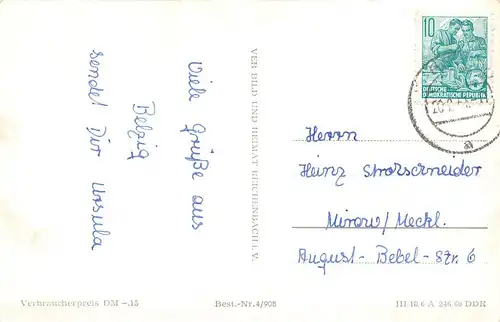 Viele Grüße aus
Belzig
sendet Dir Ursula
VEB BILD UND HEIMAT REICHENBACH i. V.
10
DEUTSCHE
DEMOKRATISCHE REPUBLIK
Herrn
Heinz
Mirow/Meckl.
August-Bebel-Str. 6
Verbraucherpreis DM -.15
Best.-Nr. 4/908
III/18/6 A 246/60 DDR